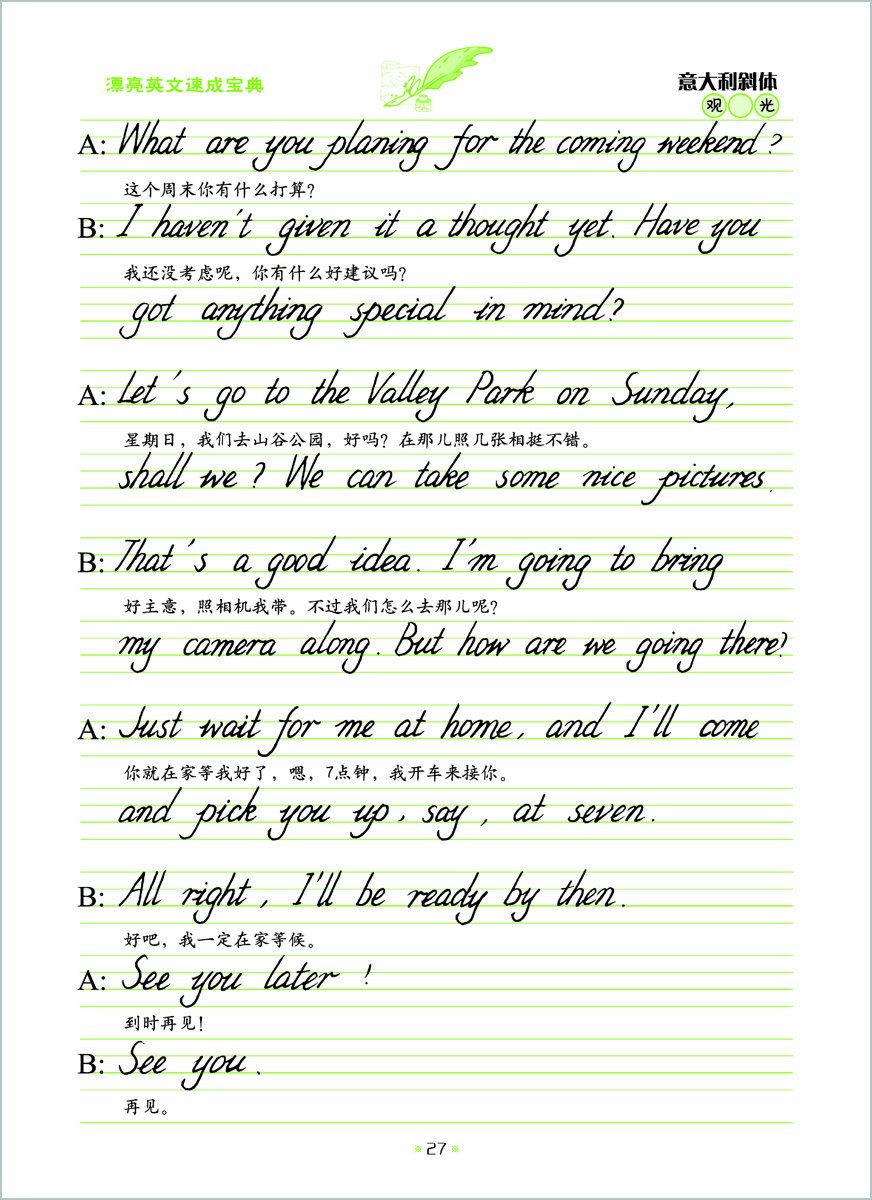 漂亮英文速成宝典
意大利斜体
观光
A: What are you planing for the coming weekend?
这个周末你有什么打算?
B: I haven't given it a thought yet. Have you
我还没考虑呢，你有什么好建议吗?
got anything special in mind?
A: Let's go to the Valley Park on Sunday,
星期日，我们去山谷公园，好吗? 在那儿照几张相挺不错。
shall we? We can take some nice pictures.
B: That's a good idea. I'm going to bring
好主意，照相机我带。不过我们怎么去那儿呢?
my camera along. But how are we going there?
A: Just wait for me at home, and I'll come
你就在家等我好了，嗯，7点钟，我开车来接你。
and pick you up, say, at seven.
B: All right, I'll be ready by then.
好吧，我一定在家等候。
A: See you later!
到时再见!
B: See you.
再见。
27